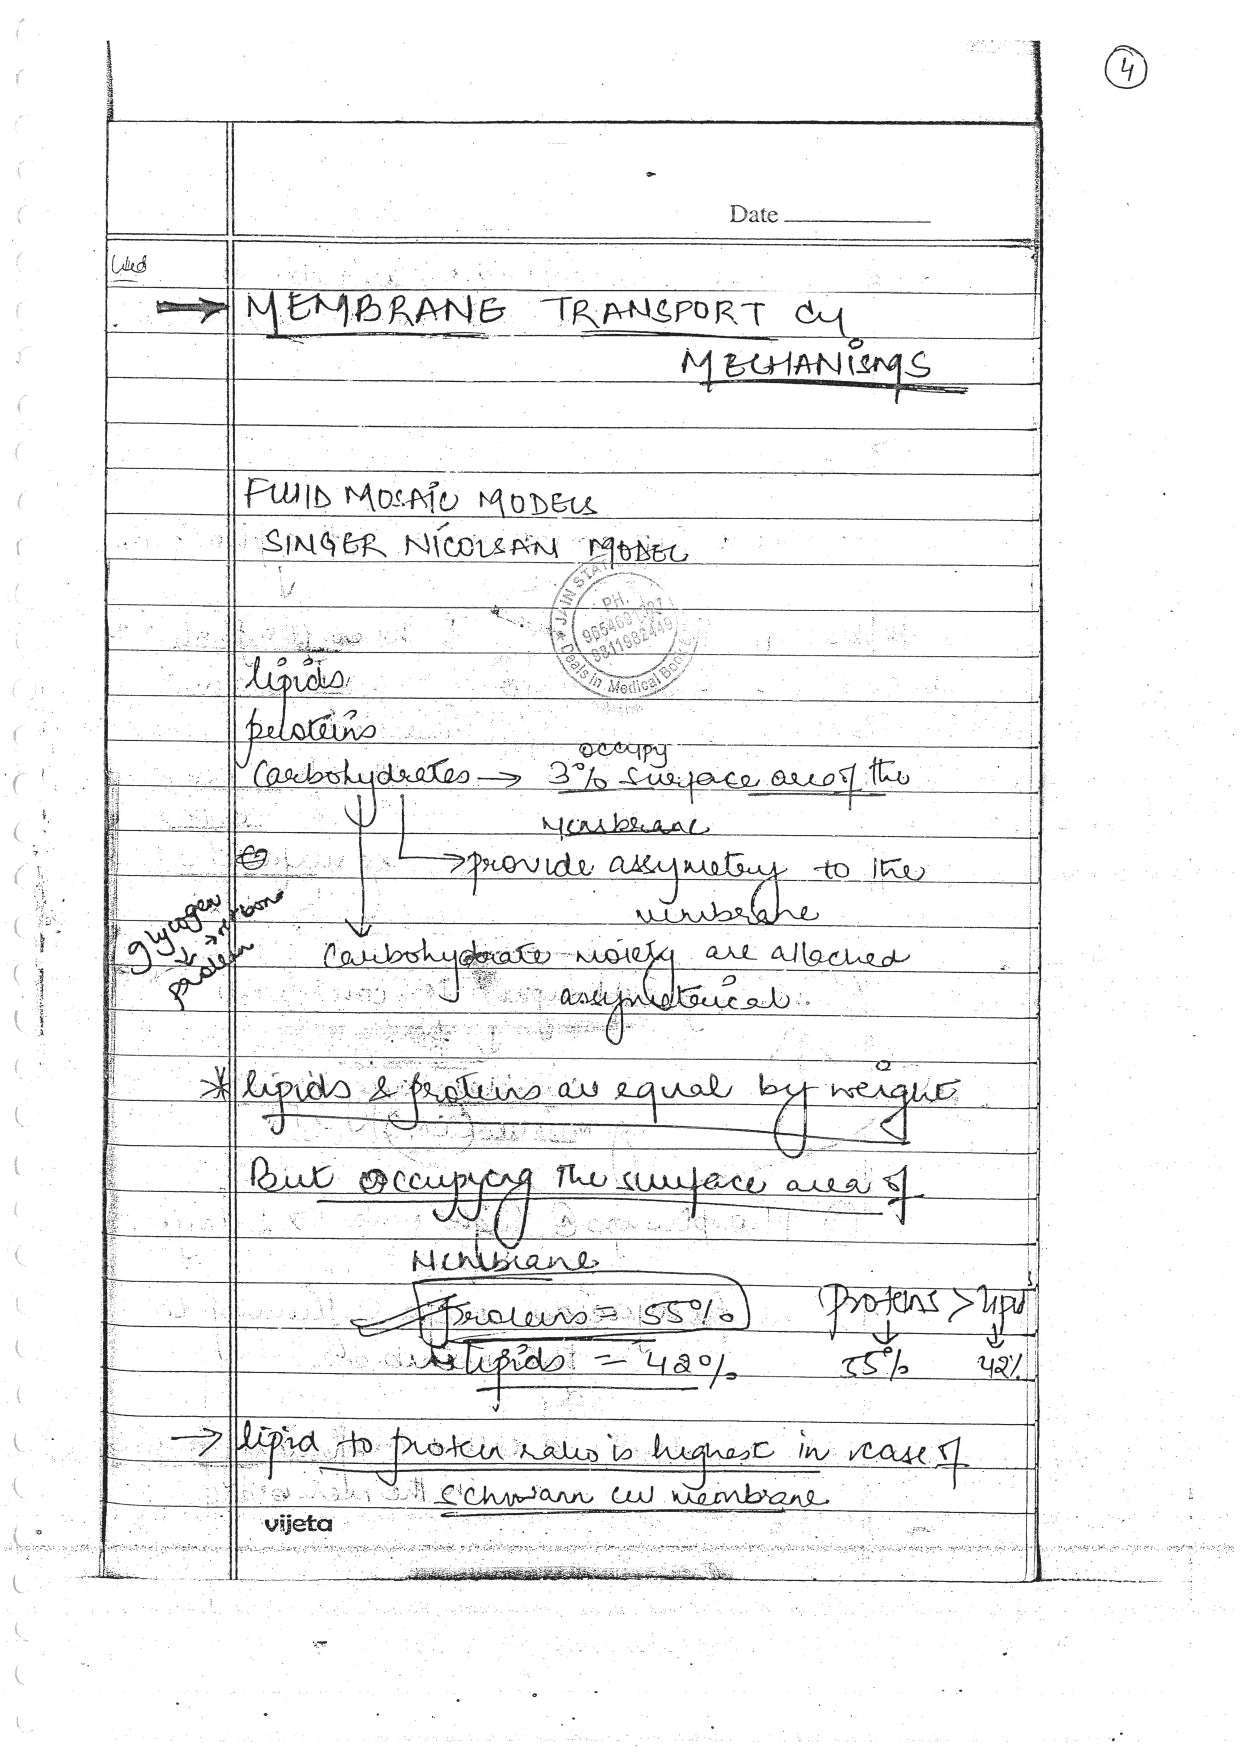 4
Date
MEMBRANE TRANSPORT
MECHANISMS
FLUID MOSAIC MODELS
SINGER NICOLSAN MODEL
JAIN STAT
PH.
9811982449
Deals in Medical Book
lipids
proteins
occupy
Carbohydrates → 3% surface area of the
Membrane
→ provide assymetry to the
membrane
glycogen
protein
Carbohydrate moiety are attached
assymetrical.
* lipids & proteins are equal by weight
But occupying the surface area of
Membrane
proteins = 55%
lipids = 42%
Proteins > lipid
55% 42%
→ lipid to protein ratio is highest in case of
Schwann cell membrane
vijeta